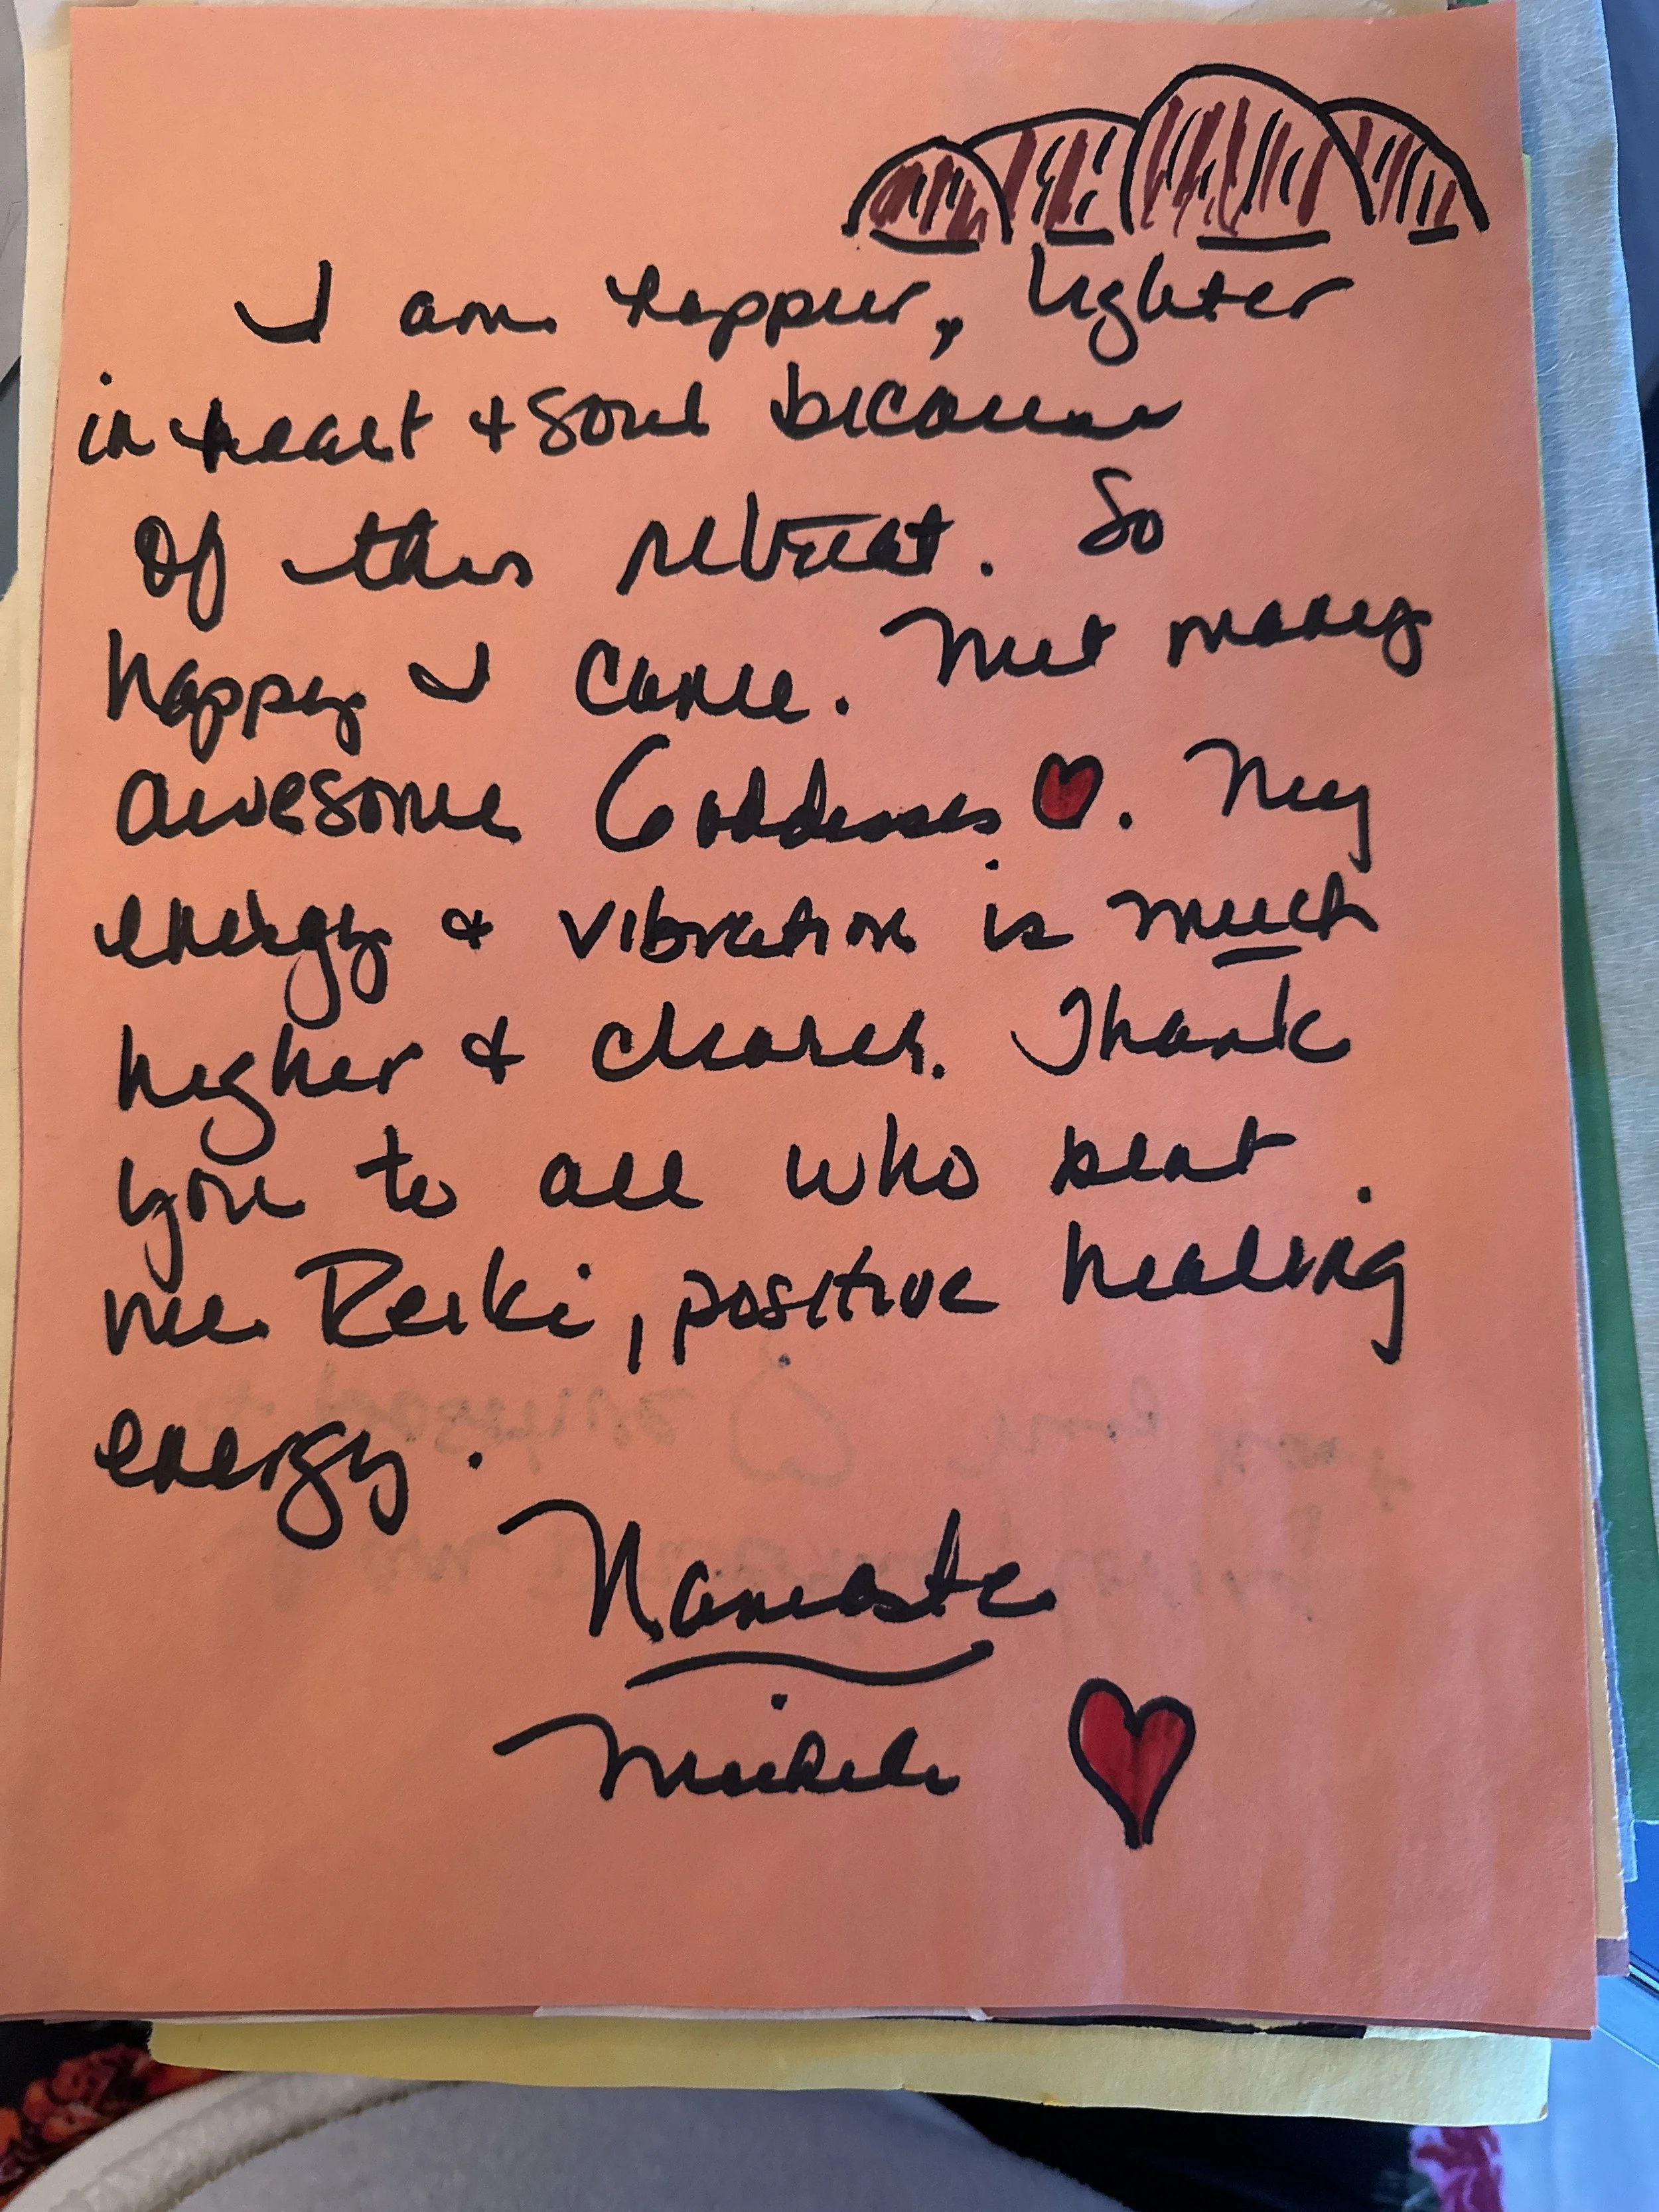 I am happier, lighter
in heart + soul because
of this retreat. So
happy I came. Met many
awesome Goddesses ♥. My
energy & vibration is much
higher & clearer. Thank
you to all who sent
me Reiki, positive healing
energy.
Namaste
Michele